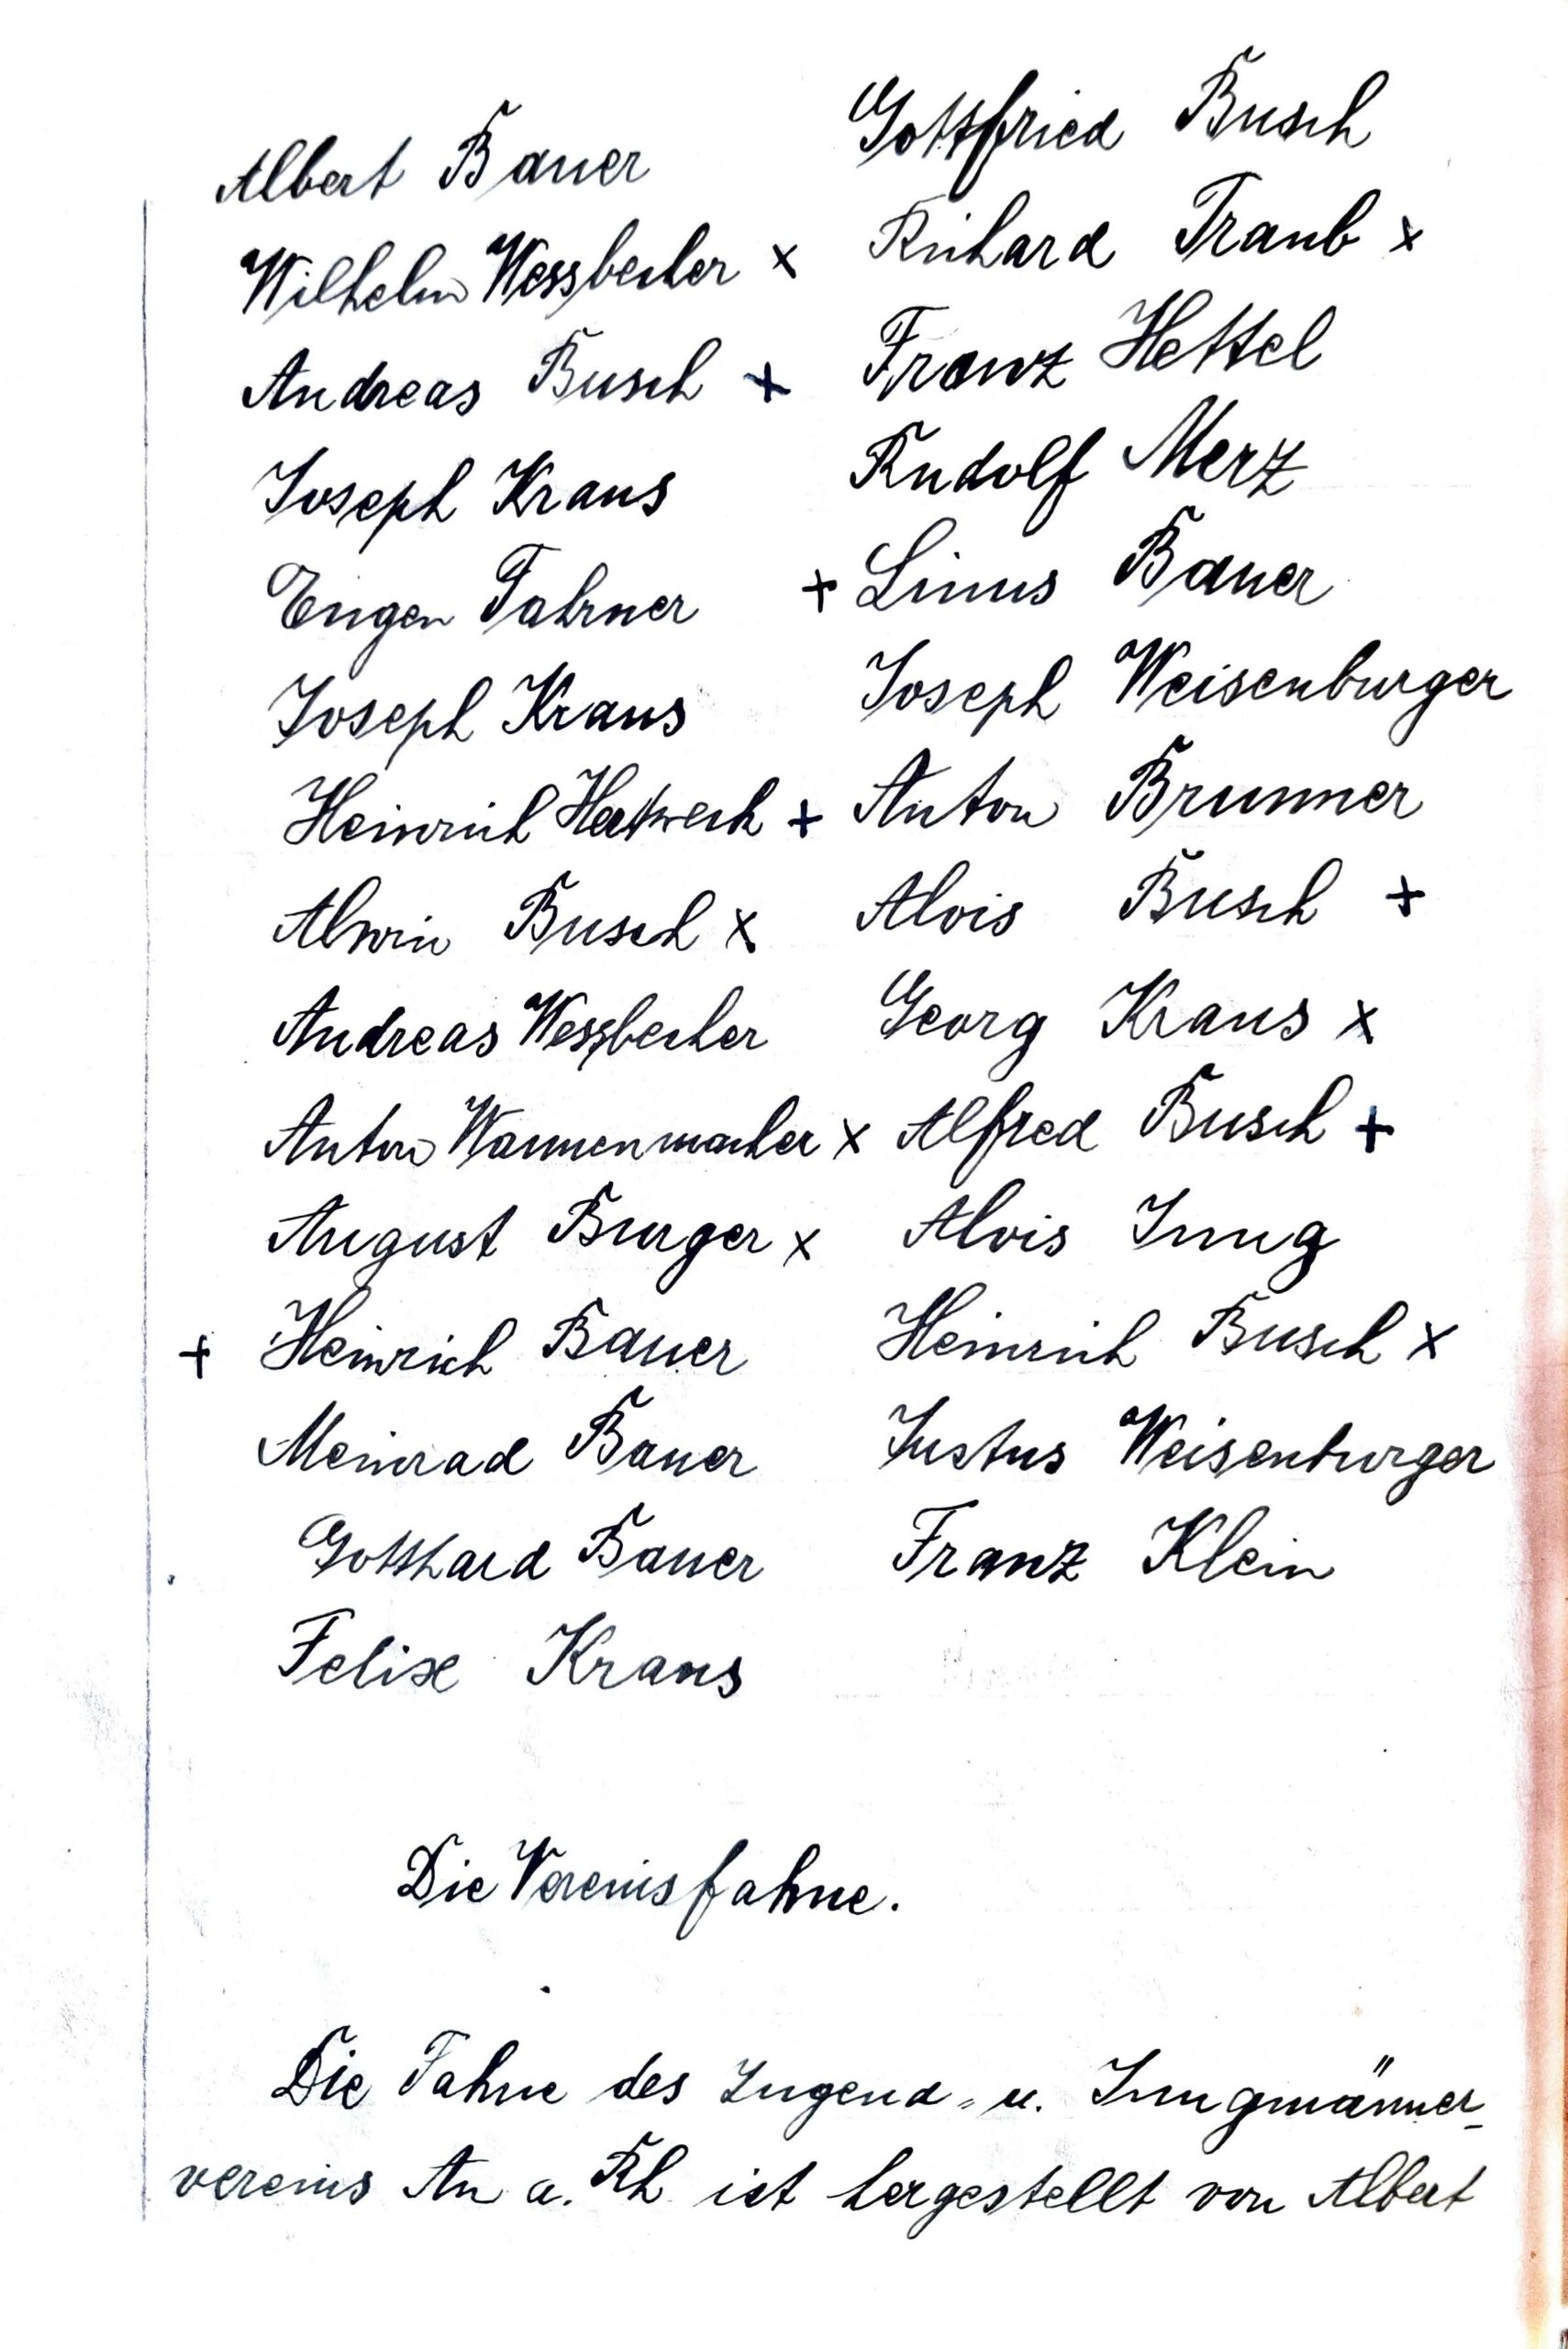 Albert Bauer
Wilhelm Wessbecher x
Andreas Busch +
Joseph Kraus
Eugen Fahrner
Joseph Kraus
Heinrich Hertweck +
Alwin Busch x
Andreas Wessbecher
Anton Wannenmacher x
August Burger x
+ Heinrich Bauer
Meinrad Bauer
Gotthard Bauer
Felix Kraus
Gottfried Busch
Richard Traub x
Franz Hettel
Rudolf Merz
+ Linus Bauer
Joseph Weisenburger
Anton Brunner
Alois Busch +
Georg Kraus x
Alfred Busch +
Alois Jung
Heinrich Busch x
Justus Weisenburger
Franz Klein
Die Vereinsfahne.
Die Fahne des Jugend- u. Jungmänner-
vereins Au a. Rh ist hergestellt von Albert